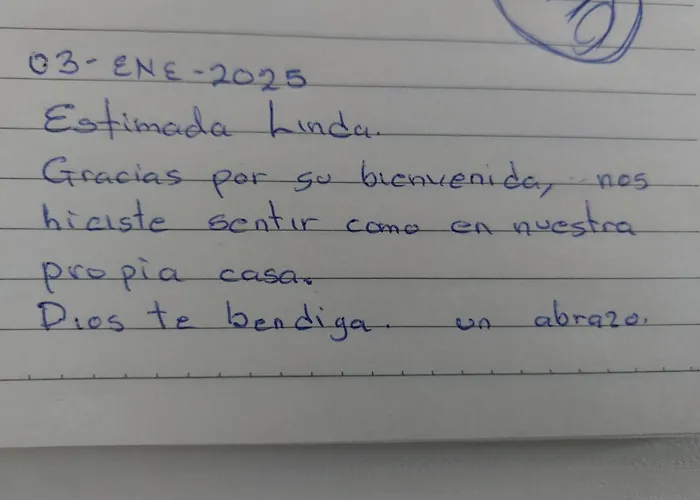 03-ENE-2025
Estimada Linda.
Gracias por su bienvenida, nos
hiciste sentir como en nuestra
propia casa.
Dios te bendiga. un abrazo.